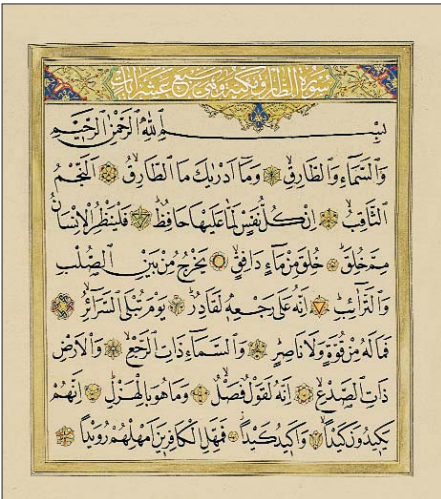 سورة الطارق مكية وهي سبع عشرة آيات
بسم الله الرحمن الرحيم
وَالسَّمَاءِ وَالطَّارِقِ وَمَا اَدْرٰيكَ مَا الطَّارِقُ اَلنَّجْمُ
الثَّاقِبُ اِنْ كُلُّ نَفْسٍ لَمَّا عَلَيْهَا حَافِظٌ فَلْيَنْظُرِ الْاِنْسَانُ
مِمَّ خُلِقَ خُلِقَ مِنْ مَاءٍ دَافِقٍ يَخْرُجُ مِنْ بَيْنِ الصُّلْبِ
وَالتَّرَائِبِ اِنَّهُ عَلٰى رَجْعِهِ لَقَادِرٌ يَوْمَ تُبْلَى السَّرَائِرُ
فَمَا لَهُ مِنْ قُوَّةٍ وَلَا نَاصِرٍ وَالسَّمَاءِ ذَاتِ الرَّجْعِ وَالْاَرْضِ
ذَاتِ الصَّدْعِ اِنَّهُ لَقَوْلٌ فَصْلٌ وَمَا هُوَ بِالْهَزْلِ اِنَّهُمْ
يَكِيدُونَ كَيْدًا وَاَكِيدُ كَيْدًا فَمَهِّلِ الْكَافِرِينَ اَمْهِلْهُمْ رُوَيْدًا